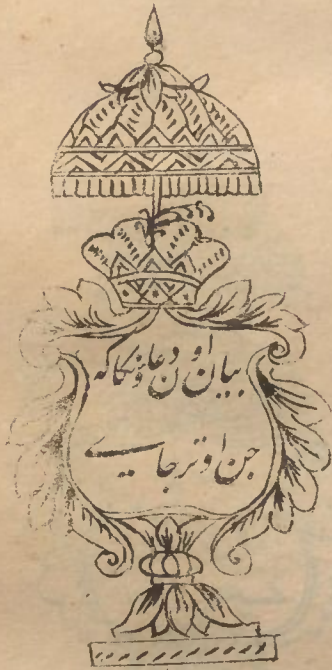 بیان اون دعاونکا که
جن اوتر جاے